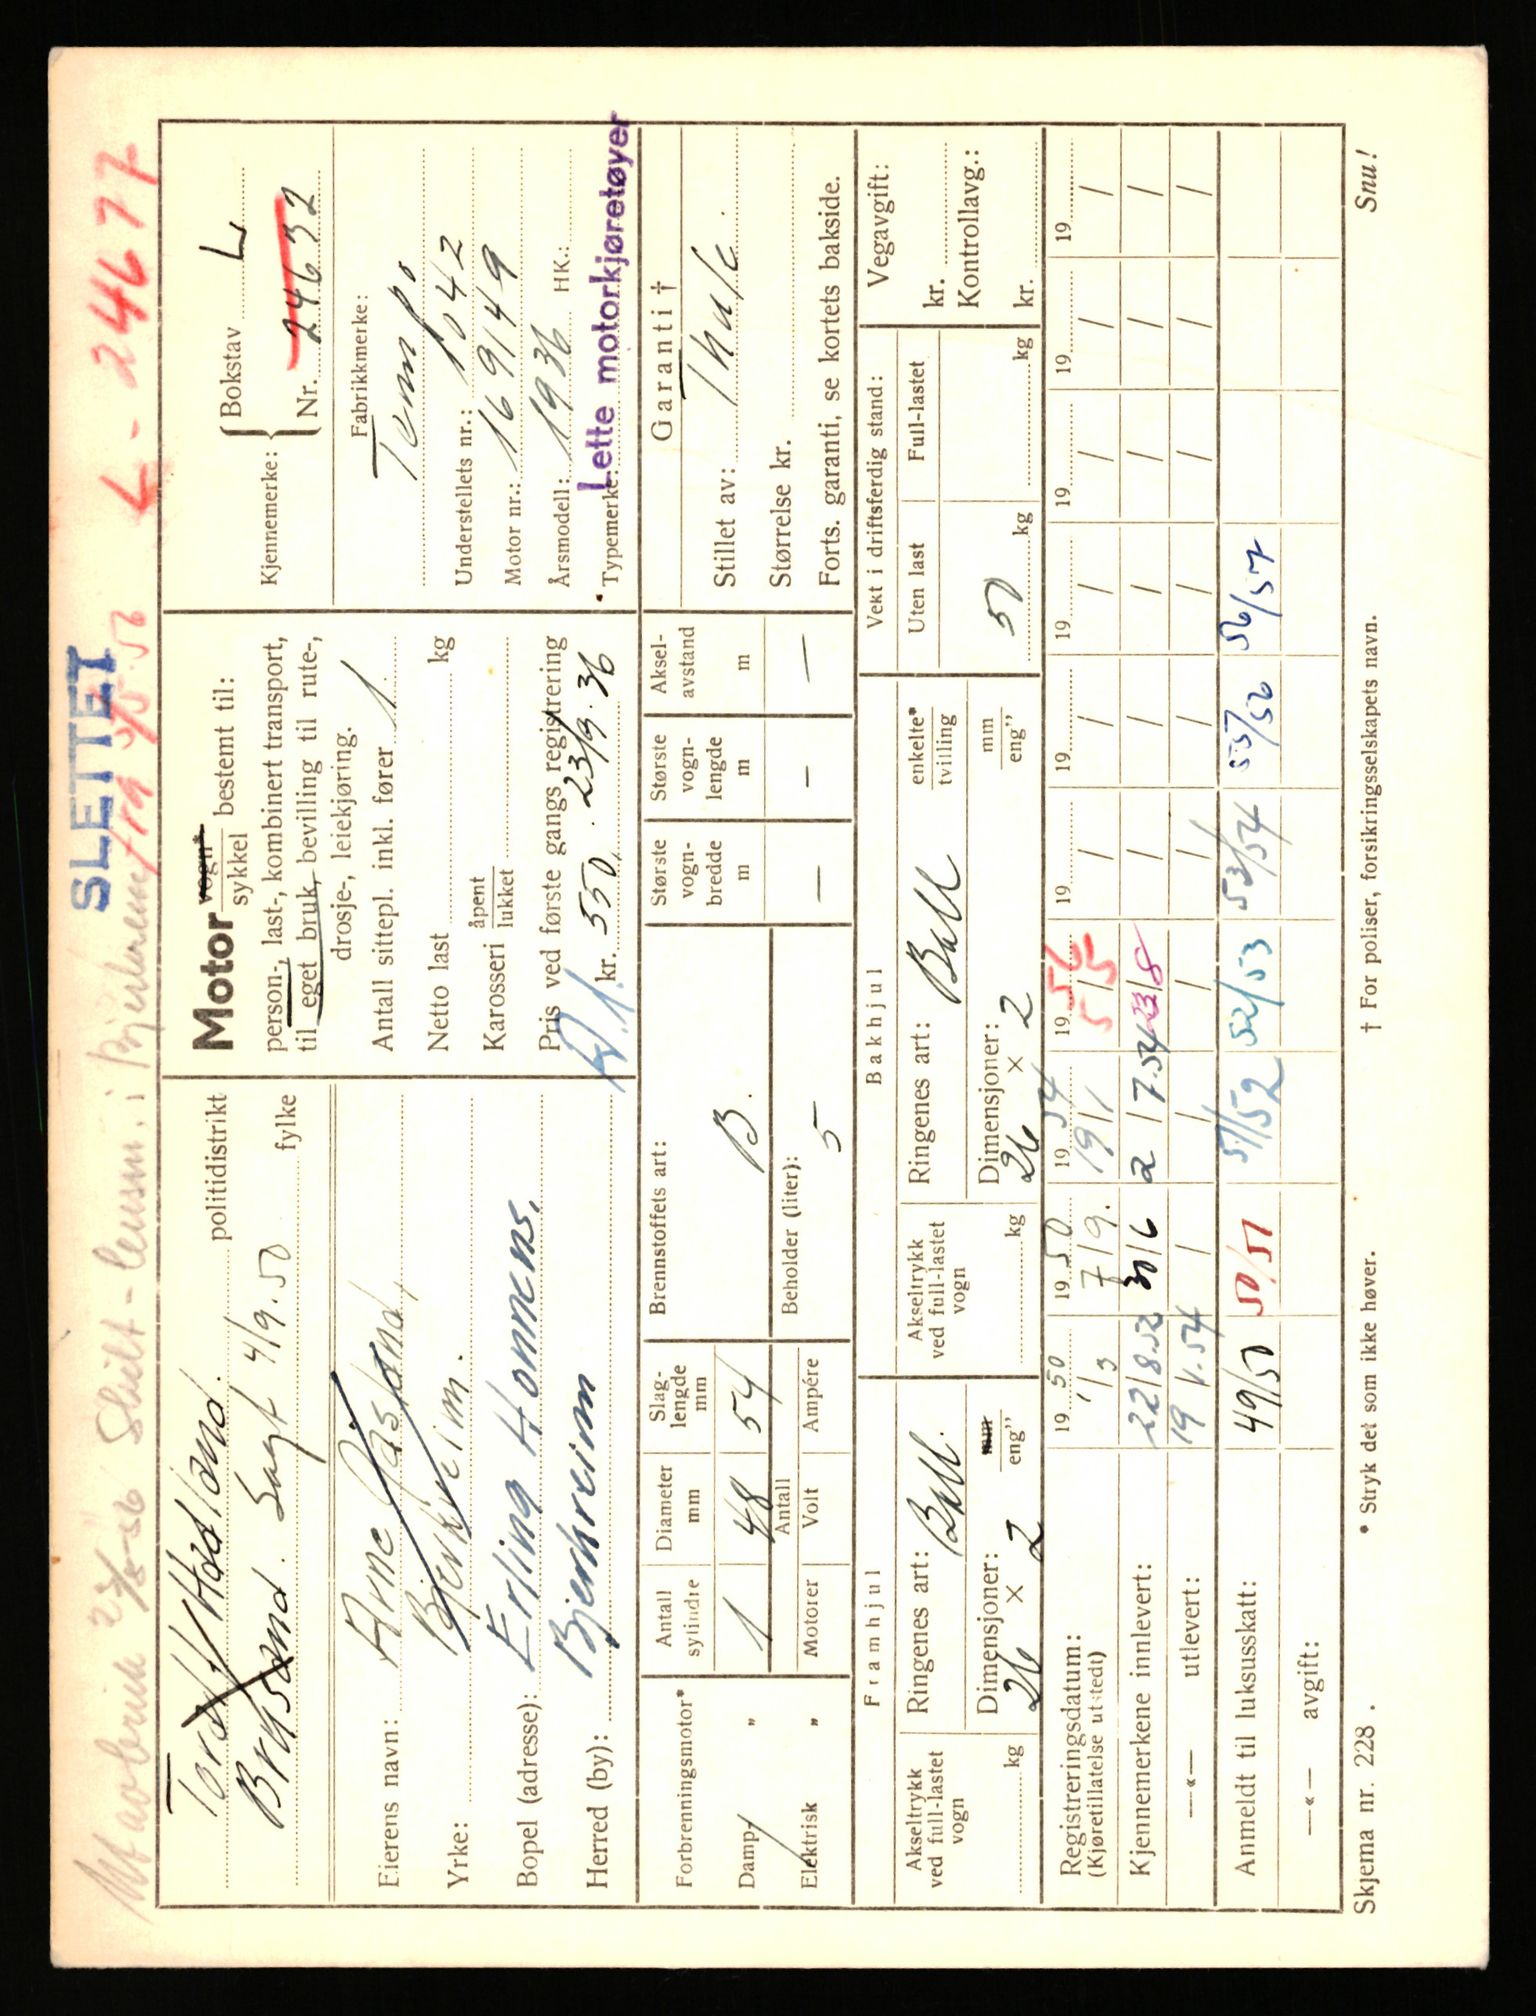 SLETTET
Skilt-
fra 3/5.56 L - 24677
Tor Hadland.
politidistrikt
Brusand. Sagt 4/9.50
fylke
Eierens navn: Arne
Yrke: Bjerkreim.
Bopel (adresse): Erling Hommens.
Herred (by): Bjerkreim
Motor vogn*
sykkel bestemt til:
person-, last-, kombinert transport,
til eget bruk, bevilling til rute-,
drosje-, leiekjøring.
Antall sittepl. inkl. fører 1.
Netto last kg
Karosseri åpent
lukket
Pris ved første gangs registrering
kr. 550. 23/9.36
Kjennemerke: { Bokstav L
Nr. 24632
Fabrikkmerke:
Tempo
Understellets nr.: 1042
Motor nr.: 169149
Årsmodell: 1936 HK.:
* Typemerke: Lette motorkjøretøyer
Forbrenningsmotor*
Damp- „
Elektrisk „
Antall sylindre 1
Diameter mm 48
Slaglengde mm 54
Motorer
Antall
Volt
Ampére
Brennstoffets art:
B.
Beholder (liter):
5
Største vognbredde m —
Største vognlengde m —
Akselavstand m —
Garanti †
Stillet av:
Størrelse kr.
Forts. garanti, se kortets bakside.
Framhjul
Akseltrykk ved full-lastet vogn
kg
Ringenes art: Ball.
Dimensjoner: mm
eng”
26 × 2
Bakhjul
Akseltrykk ved full-lastet vogn
kg
Ringenes art: Ball
enkelte*
tvilling
Dimensjoner: mm
eng”
26 × 2
Vekt i driftsferdig stand:
Uten last
50 kg
Full-lastet
kg
Vegavgift:
kr.
Kontrollavg.:
kr.
Registreringsdatum: 19 50 19 50 19 54 19 56 19 19 19 19 19 19
(Kjøretillatelse utstedt) 1/3 7/9. 19/1 5/5 / / / / / /
Kjennemerkene innlevert: 22/8.52 30/6 2/7.54 23/8 / / / / / /
—«— utlevert: 19/1.54 / / / / / / / / /
Anmeldt til luksusskatt: 49/50 50/51 51/52 52/53 53/54 55/56 56/57
—«— avgift:
Skjema nr. 228 .
* Stryk det som ikke høver.
† For poliser, forsikringsselskapets navn.
Snu!